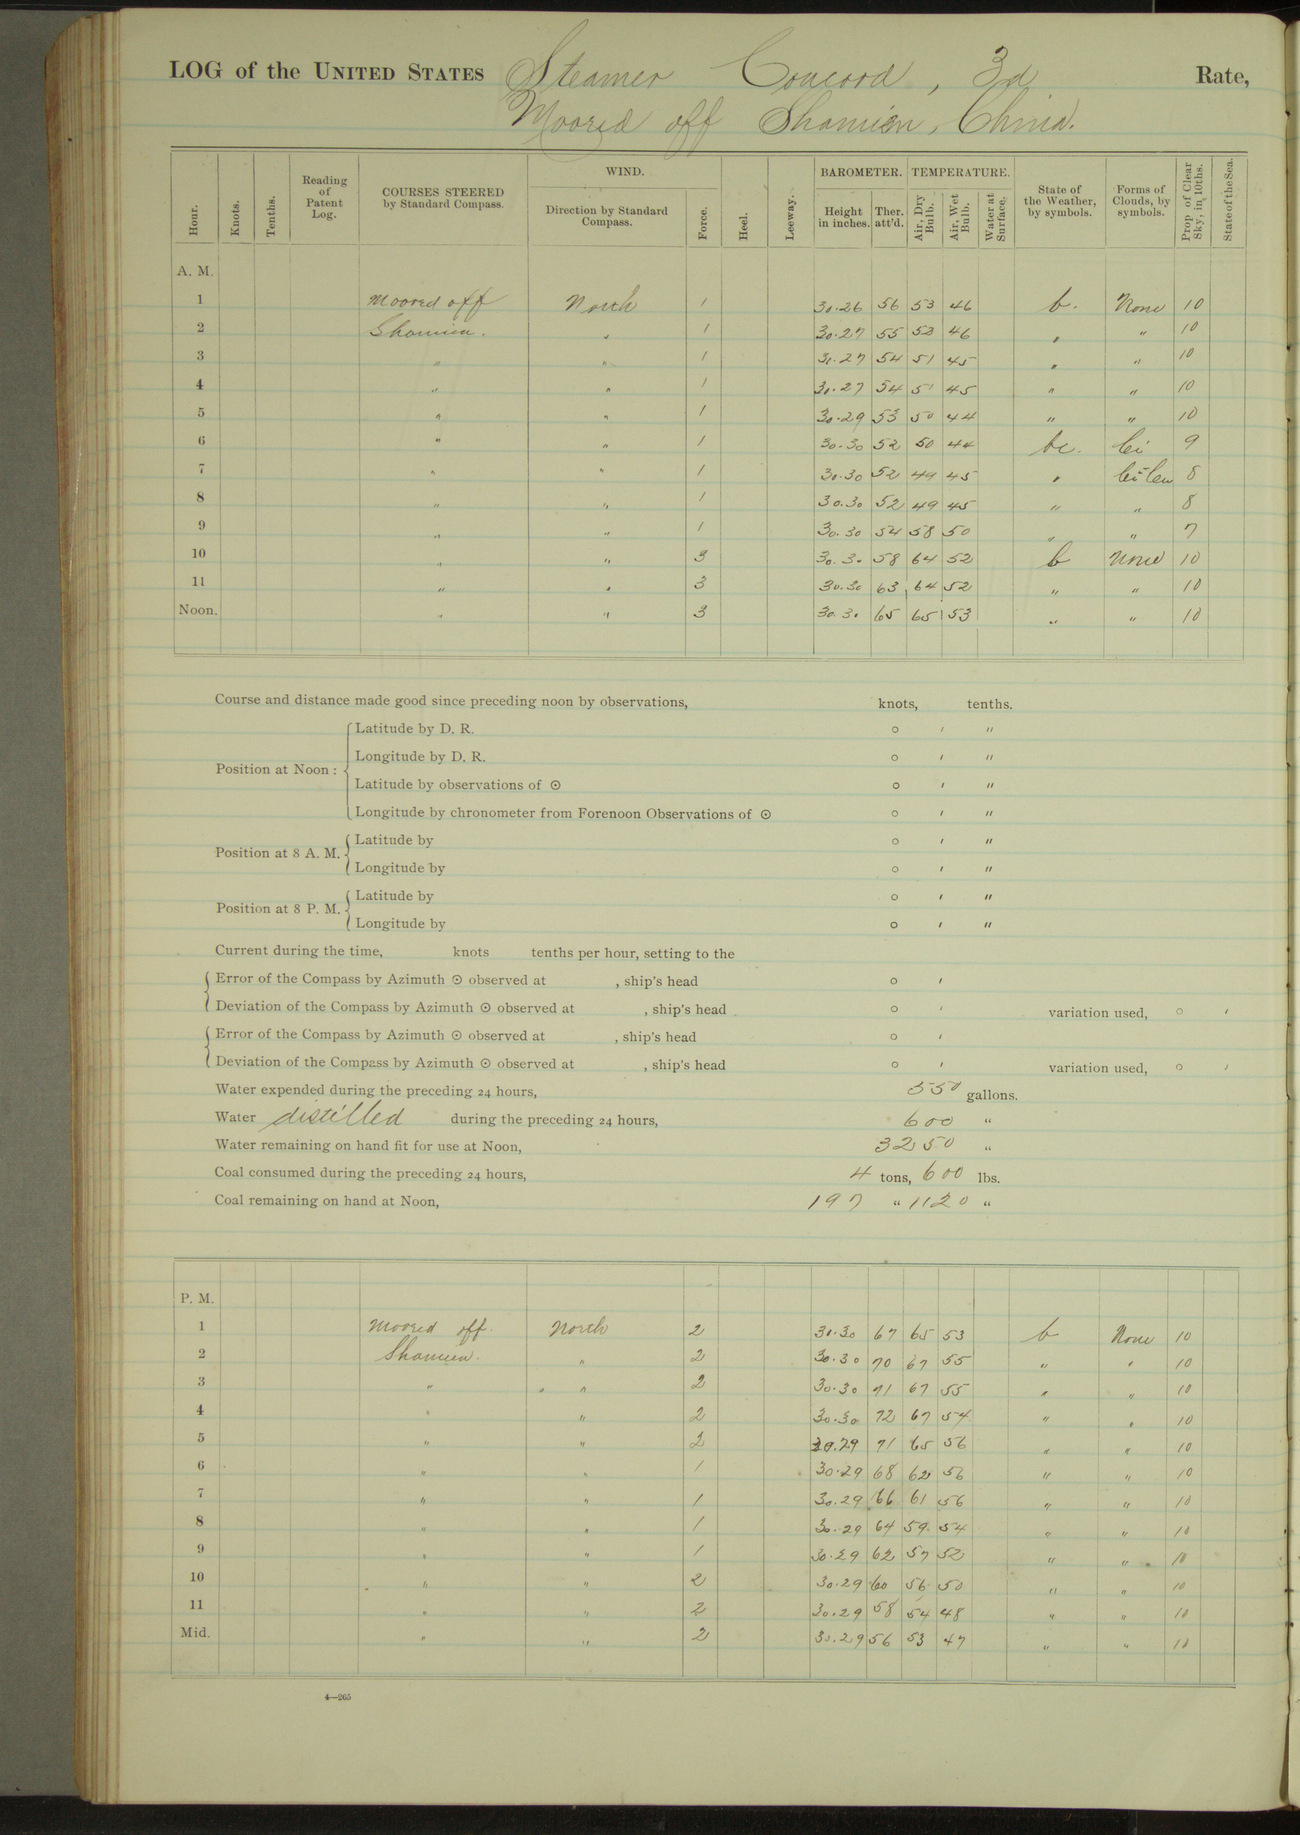 LOG of the UNITED STATES Steamer Concord, 3d Rate,
Moored off Shamien, China.
Hour. Knots. Tenths. Reading of Patent Log. COURSES STEERED by Standard Compass. WIND. Direction by Standard Compass. Force. Heel. Leeway. BAROMETER. Height in inches. Ther. att'd. TEMPERATURE. Air, Dry Bulb. Air, Wet Bulb. Water at Surface. State of the Weather, by symbols. Forms of Clouds, by symbols. Prop of Clear Sky, in 10ths. State of the Sea.
A. M.
1 Moored off North 1 30.26 56 53 46 b. None 10
2 Shamien. " 1 30.27 55 53 46 " " 10
3 " " 1 30.27 54 51 45 " " 10
4 " " 1 30.27 54 51 45 " " 10
5 " " 1 30.29 53 50 44 " " 10
6 " " 1 30.30 52 50 44 bc. Ci 9
7 " " 1 30.30 52 49 45 " Ci-Cu 8
8 " " 1 30.30 52 49 45 " " 8
9 " " 1 30.30 54 58 50 " " 7
10 " " 3 30.30 58 64 52 b None 10
11 " " 3 30.30 63 64 52 " " 10
Noon. " " 3 30.30 65 65 53 " " 10
Course and distance made good since preceding noon by observations, knots, tenths.
Position at Noon: Latitude by D. R. ° ′ ″
Longitude by D. R. ° ′ ″
Latitude by observations of ☉ ° ′ ″
Longitude by chronometer from Forenoon Observations of ☉ ° ′ ″
Position at 8 A. M. Latitude by ° ′ ″
Longitude by ° ′ ″
Position at 8 P. M. Latitude by ° ′ ″
Longitude by ° ′ ″
Current during the time, knots tenths per hour, setting to the
Error of the Compass by Azimuth ☉ observed at , ship's head ° ′
Deviation of the Compass by Azimuth ☉ observed at , ship's head ° ′ variation used, ° ′
Error of the Compass by Azimuth ☉ observed at , ship's head ° ′
Deviation of the Compass by Azimuth ☉ observed at , ship's head ° ′ variation used, ° ′
Water expended during the preceding 24 hours, 550 gallons.
Water distilled during the preceding 24 hours, 600 "
Water remaining on hand fit for use at Noon, 3250 "
Coal consumed during the preceding 24 hours, 4 tons, 600 lbs.
Coal remaining on hand at Noon, 197 " 1120 "
P. M.
1 Moored off North 2 30.30 67 65 53 b None 10
2 Shamien. " 2 30.30 70 67 55 " " 10
3 " " 2 30.30 71 67 55 " " 10
4 " " 2 30.30 72 67 54 " " 10
5 " " 2 30.29 71 65 56 " " 10
6 " " 1 30.29 68 62 56 " " 10
7 " " 1 30.29 66 61 56 " " 10
8 " " 1 30.29 64 59 54 " " 10
9 " " 1 30.29 62 57 52 " " 10
10 " " 2 30.29 60 56 50 " " 10
11 " " 2 30.29 58 54 48 " " 10
Mid. " " 2 30.29 56 53 47 " " 10
4—265